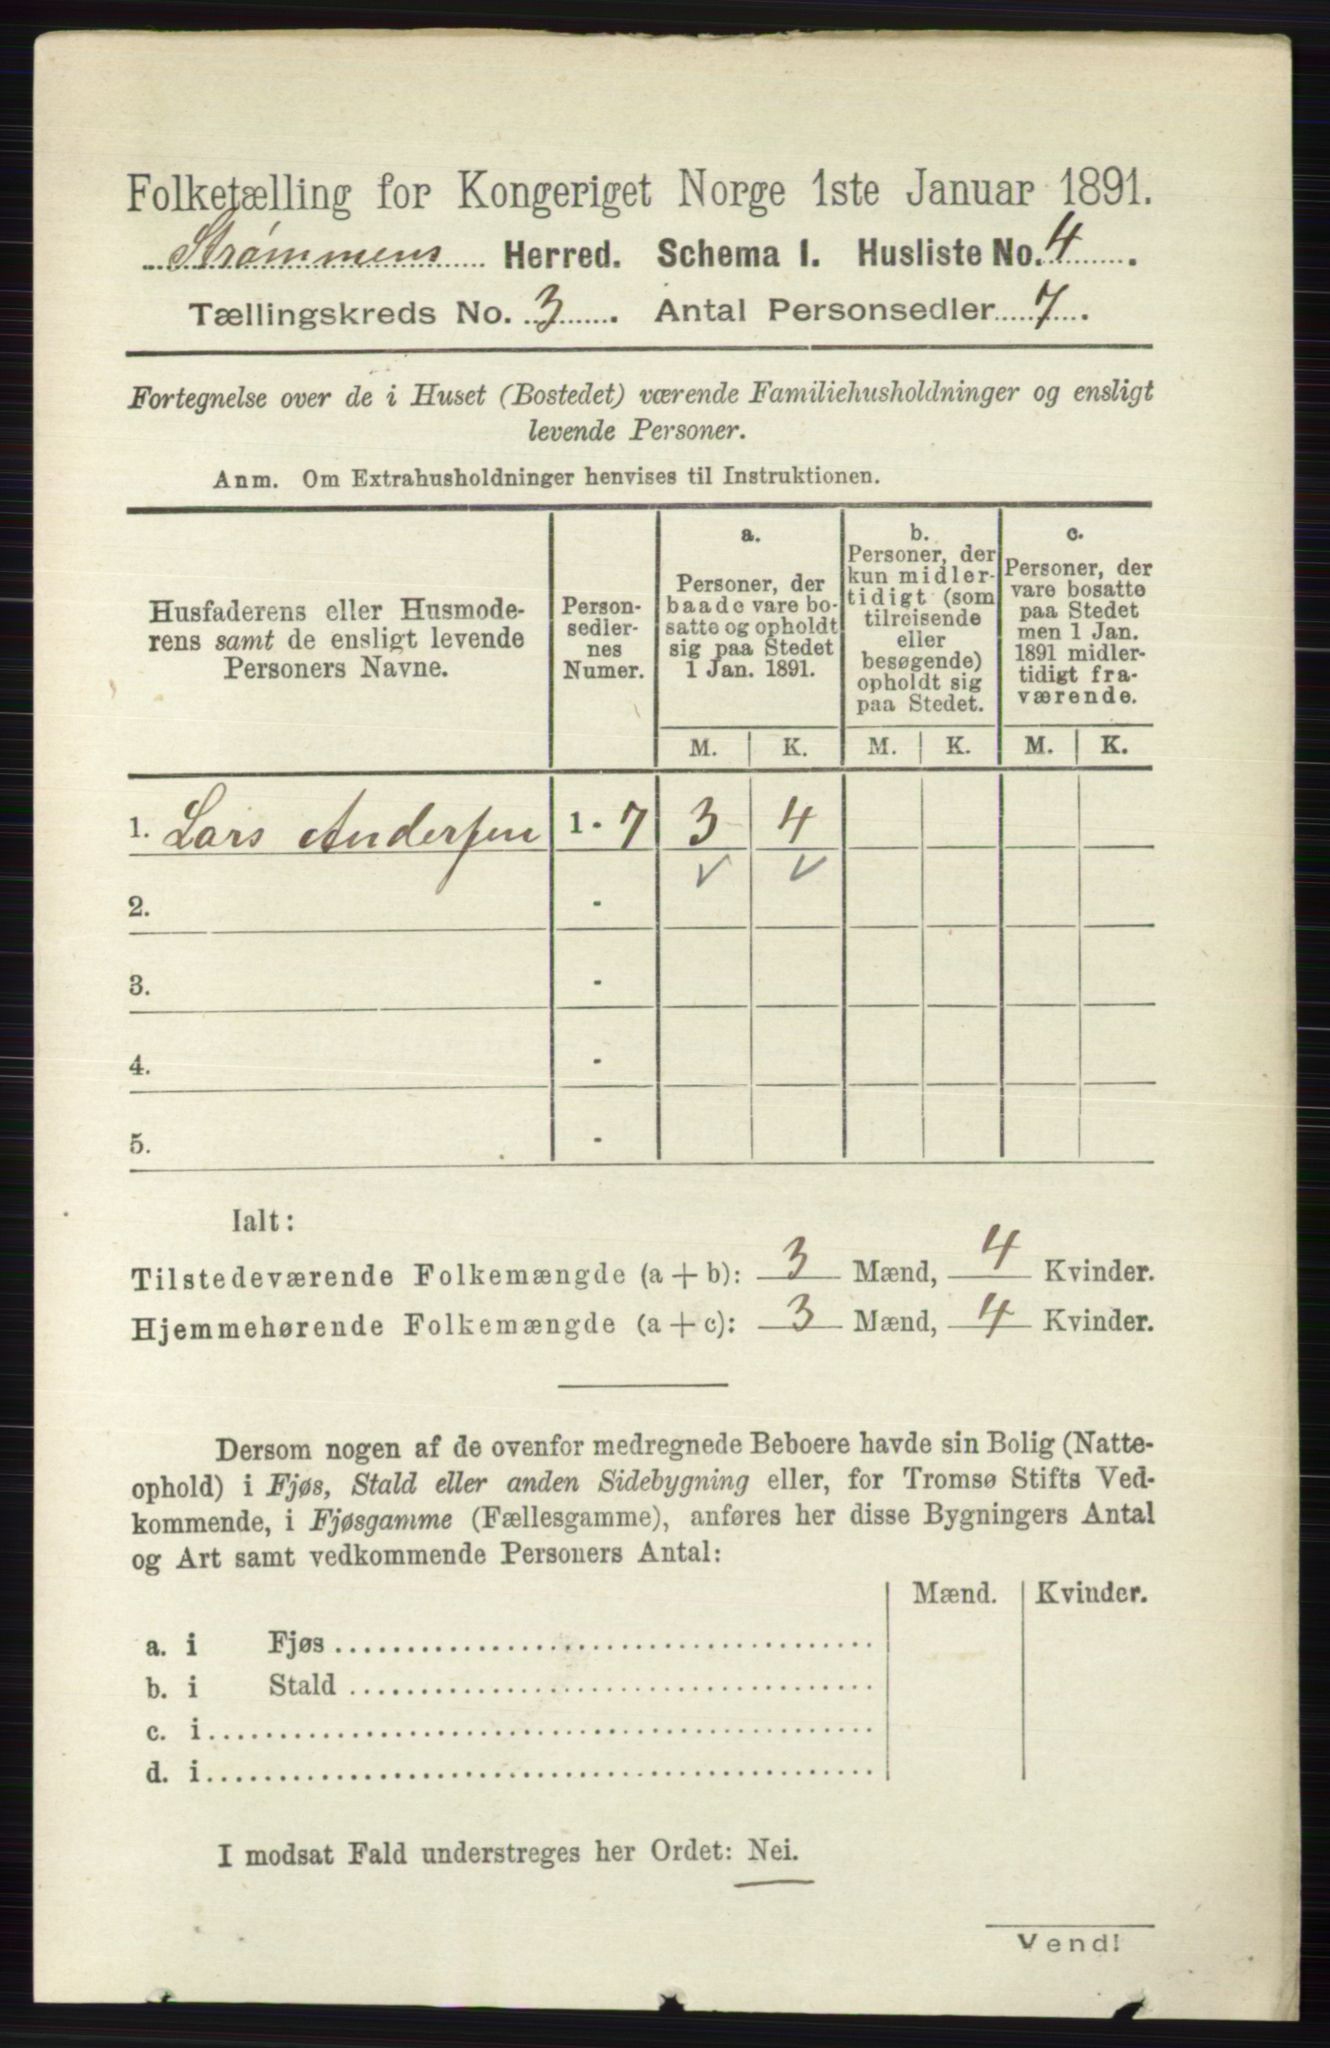 Folketælling for Kongeriget Norge 1ste Januar 1891.
Strømmens Herred. Schema I. Husliste No. 4
Tællingskreds No. 3. Antal Personsedler 7.
Fortegnelse over de i Huset (Bostedet) værende Familiehusholdninger og ensligt
levende Personer.
Anm. Om Extrahusholdninger henvises til Instruktionen.
Husfaderens eller Husmode-
rens samt de ensligt levende
Personers Navne.
Person-
sedler-
nes
Numer.
a.
Personer, der
baade vare bo-
satte og opholdt
sig paa Stedet
1 Jan. 1891.
b.
Personer, der
kun midler-
tidigt (som
tilreisende
eller
besøgende)
opholdt sig
paa Stedet.
c.
Personer, der
vare bosatte
paa Stedet
men 1 Jan.
1891 midler-
tidigt fra-
værende.
M. K. M. K. M. K.
1. Lars Andersen 1 - 7 3 4
2. -
3. -
4. -
5. -
Ialt:
Tilstedeværende Folkemængde (a + b): 3 Mænd, 4 Kvinder.
Hjemmehørende Folkemængde (a + c): 3 Mænd, 4 Kvinder.
Dersom nogen af de ovenfor medregnede Beboere havde sin Bolig (Natte-
ophold) i Fjøs, Stald eller anden Sidebygning eller, for Tromsø Stifts Ved-
kommende, i Fjøsgamme (Fællesgamme), anføres her disse Bygningers Antal
og Art samt vedkommende Personers Antal:
Mænd. Kvinder.
a. i Fjøs
b. i Stald
c. i
d. i
I modsat Fald understreges her Ordet: Nei.
Vend!